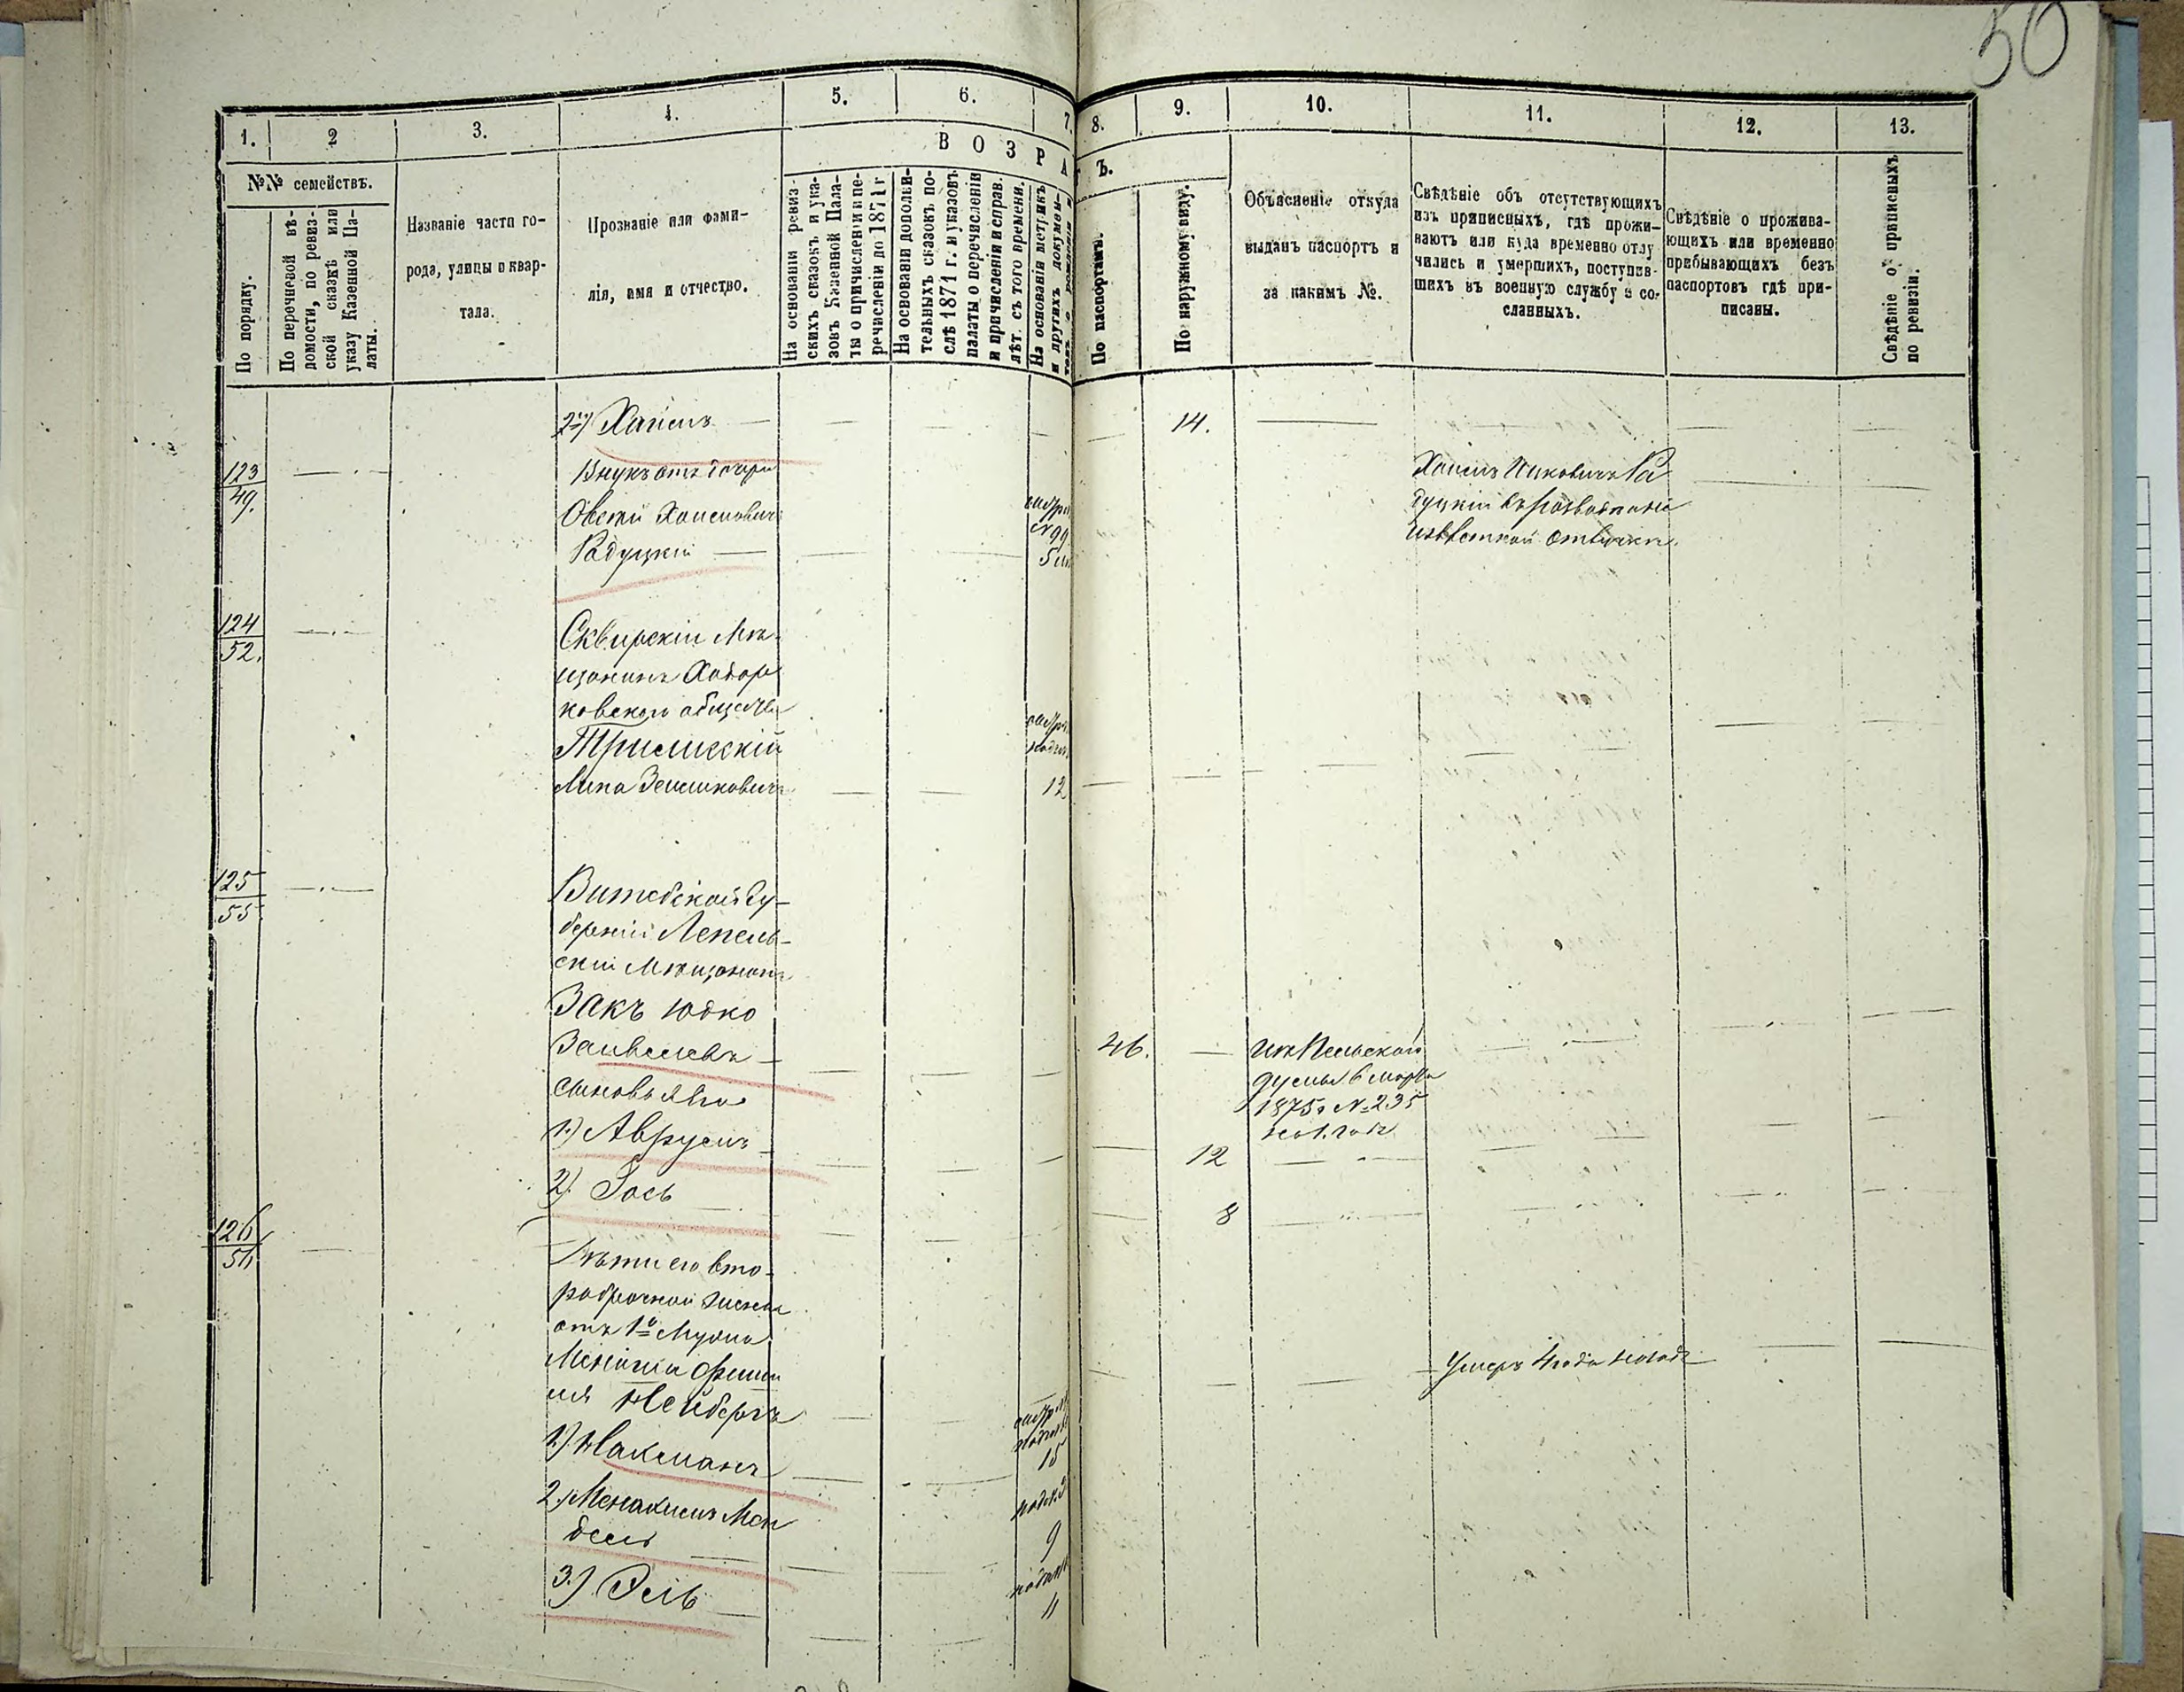 50
1.
2
3.
4.
5.
6.
7.
8.
9.
10.
11.
12.
13.
ВОЗРА
Ъ.
№№ семействъ.
По порядку.
По перечневой вѣ-
домости, по ревиз-
ской сказкѣ или
указу Казенной Па-
латы.
Названіе части го-
рода, улицы и квар-
тала.
Прозваніе или фами-
лія, имя и отчество.
На основаніи ревиз-
скихъ сказокъ и ука-
зовъ Казенной Пала-
ты о причисленіи и пе-
речисленіи до 1871 г
На основаніи дополни-
тельныхъ сказокъ по-
слѣ 1871 г. и указовъ
палаты о перечисленіи
и причисленіи и исправ.
лѣт. съ того времени.
На основаніи метрикъ
и другихъ докумен-
товъ о рожденіи и
По паспортамъ.
По наружному виду.
Объясненіе откуда
выданъ паспортъ и
за какимъ №.
Свѣдѣніе объ отсутствующихъ
изъ приписныхъ, гдѣ прожи-
ваютъ или куда временно отлу
чились и умершихъ, поступив-
шихъ въ военную службу и со-
сланныхъ.
Свѣдѣніе о прожива-
ющихъ или временно
пребывающихъ безъ
паспортовъ гдѣ при-
писаны.
Свѣдѣніе о приписныхъ
по ревизіи.
2й) Хаимъ
14.
123
49.
Внукъ отъ дочери
Хаимовичъ
Радуцкій
№ 99
5
Хаимъ Ицковичъ Ра
дуцкій въ
124
52.
Сквирскій Мѣ-
щанинъ Ходор
ковскаго общества
Трилисскій
Липа
12
125
55.
Витебской Гу-
берніи Лепель-
скій Мѣщанинъ
Закъ Юдко
46.
сыновья его
1.) Аврумъ
12
2). Іось
8
думы 6 марта
1875 г № 235
на 1. годъ
126
56
Дѣти его вто-
робрачной жены
отъ 1го Мужа
фами
лія Нейбергъ
Умеръ 4 года назадъ
1.) Нахманъ
15
2.) Менахимъ Мен
дель
9
3.) Эль
11